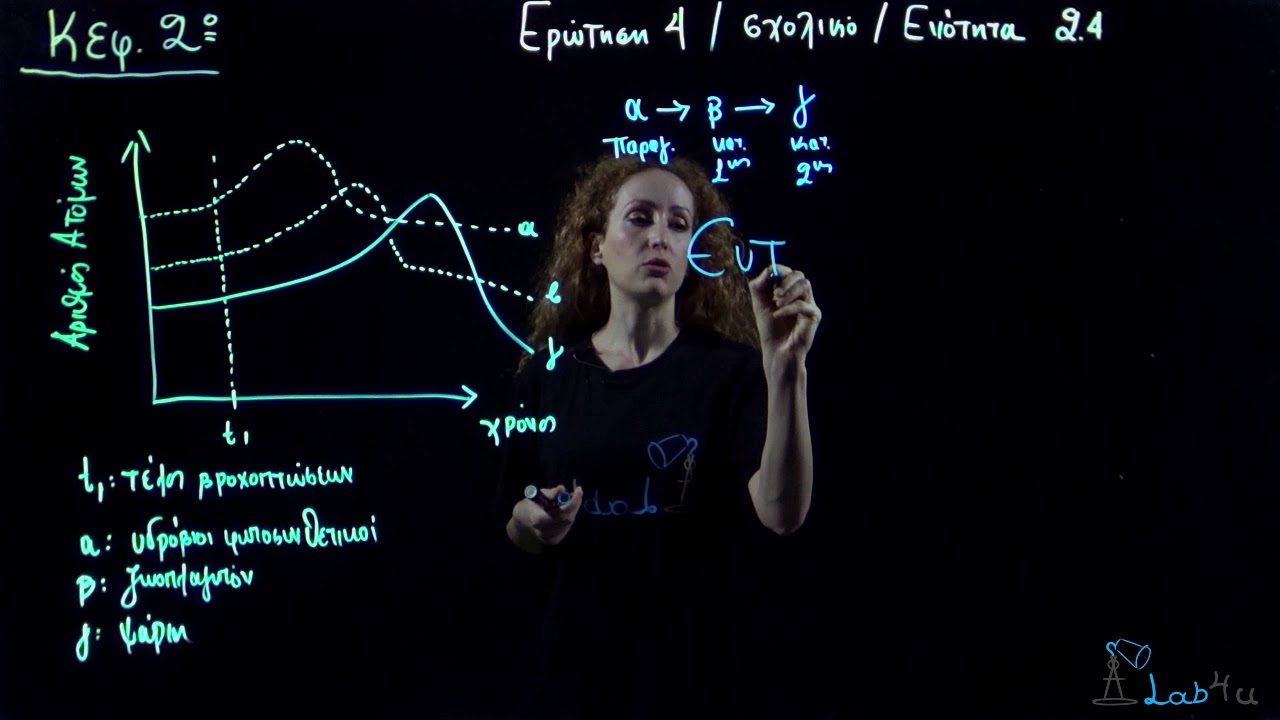 Κεφ. 2ο
Ερώτηση 4 / σχολικό / Ενότητα 2.4
α → β → γ
Παραγ. κατ. κατ.
1ης 2ης
Ευτ
Αριθμός Ατόμων
α
β
γ
χρόνος
t₁
t₁: τέλη βροχοπτώσεων
α: υδρόβιοι φωτοσυνθετικοί
β: ζωοπλαγκτόν
γ: ψάρια
Lab4u